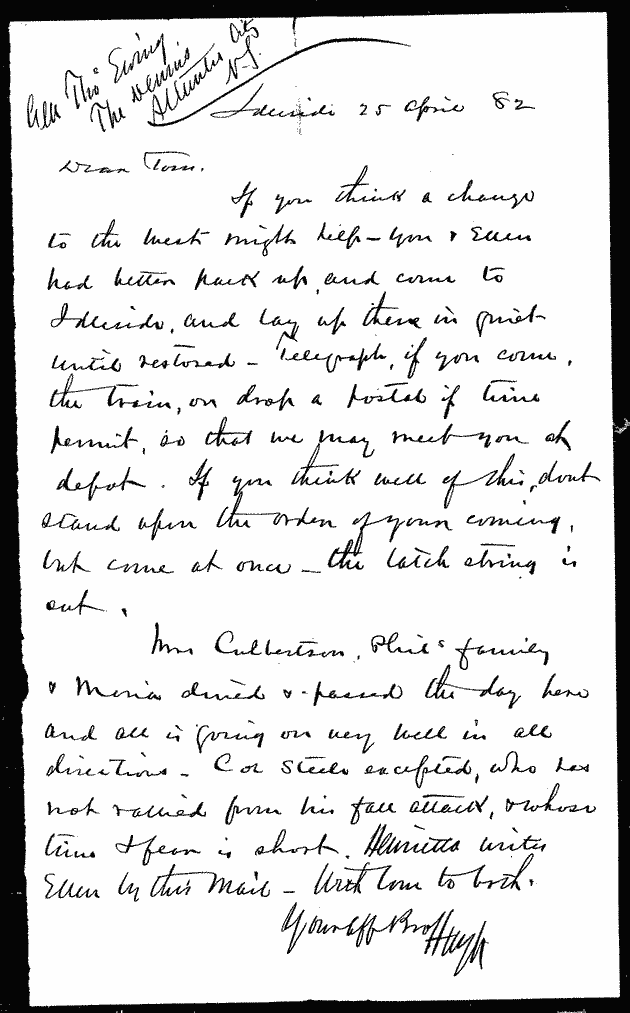 Gen Thos Ewing
The Dennis
Atlantic City
N.J.
Idleside 25 April 82
Dear Tom.
If you think a change
to the West might help – you & Ellen
had better pack up, and come to
Idleside, and lay up there in quiet
until restored – Telegraph, if you come,
the train, or drop a postal if time
permit, so that we may meet you at
depot. If you think well of this, dont
stand upon the order of your coming,
but come at once – the latch string is
out.
Mrs Culbertson, Phil's family
& Maria dined & passed the day here
and all is going on very well in all
directions – Col Steele excepted, who has
not rallied from his fall attack, & whose
time I fear is short. Henrietta writes
Ellen by this Mail – With love to both.
Your Aff Bro Hugh